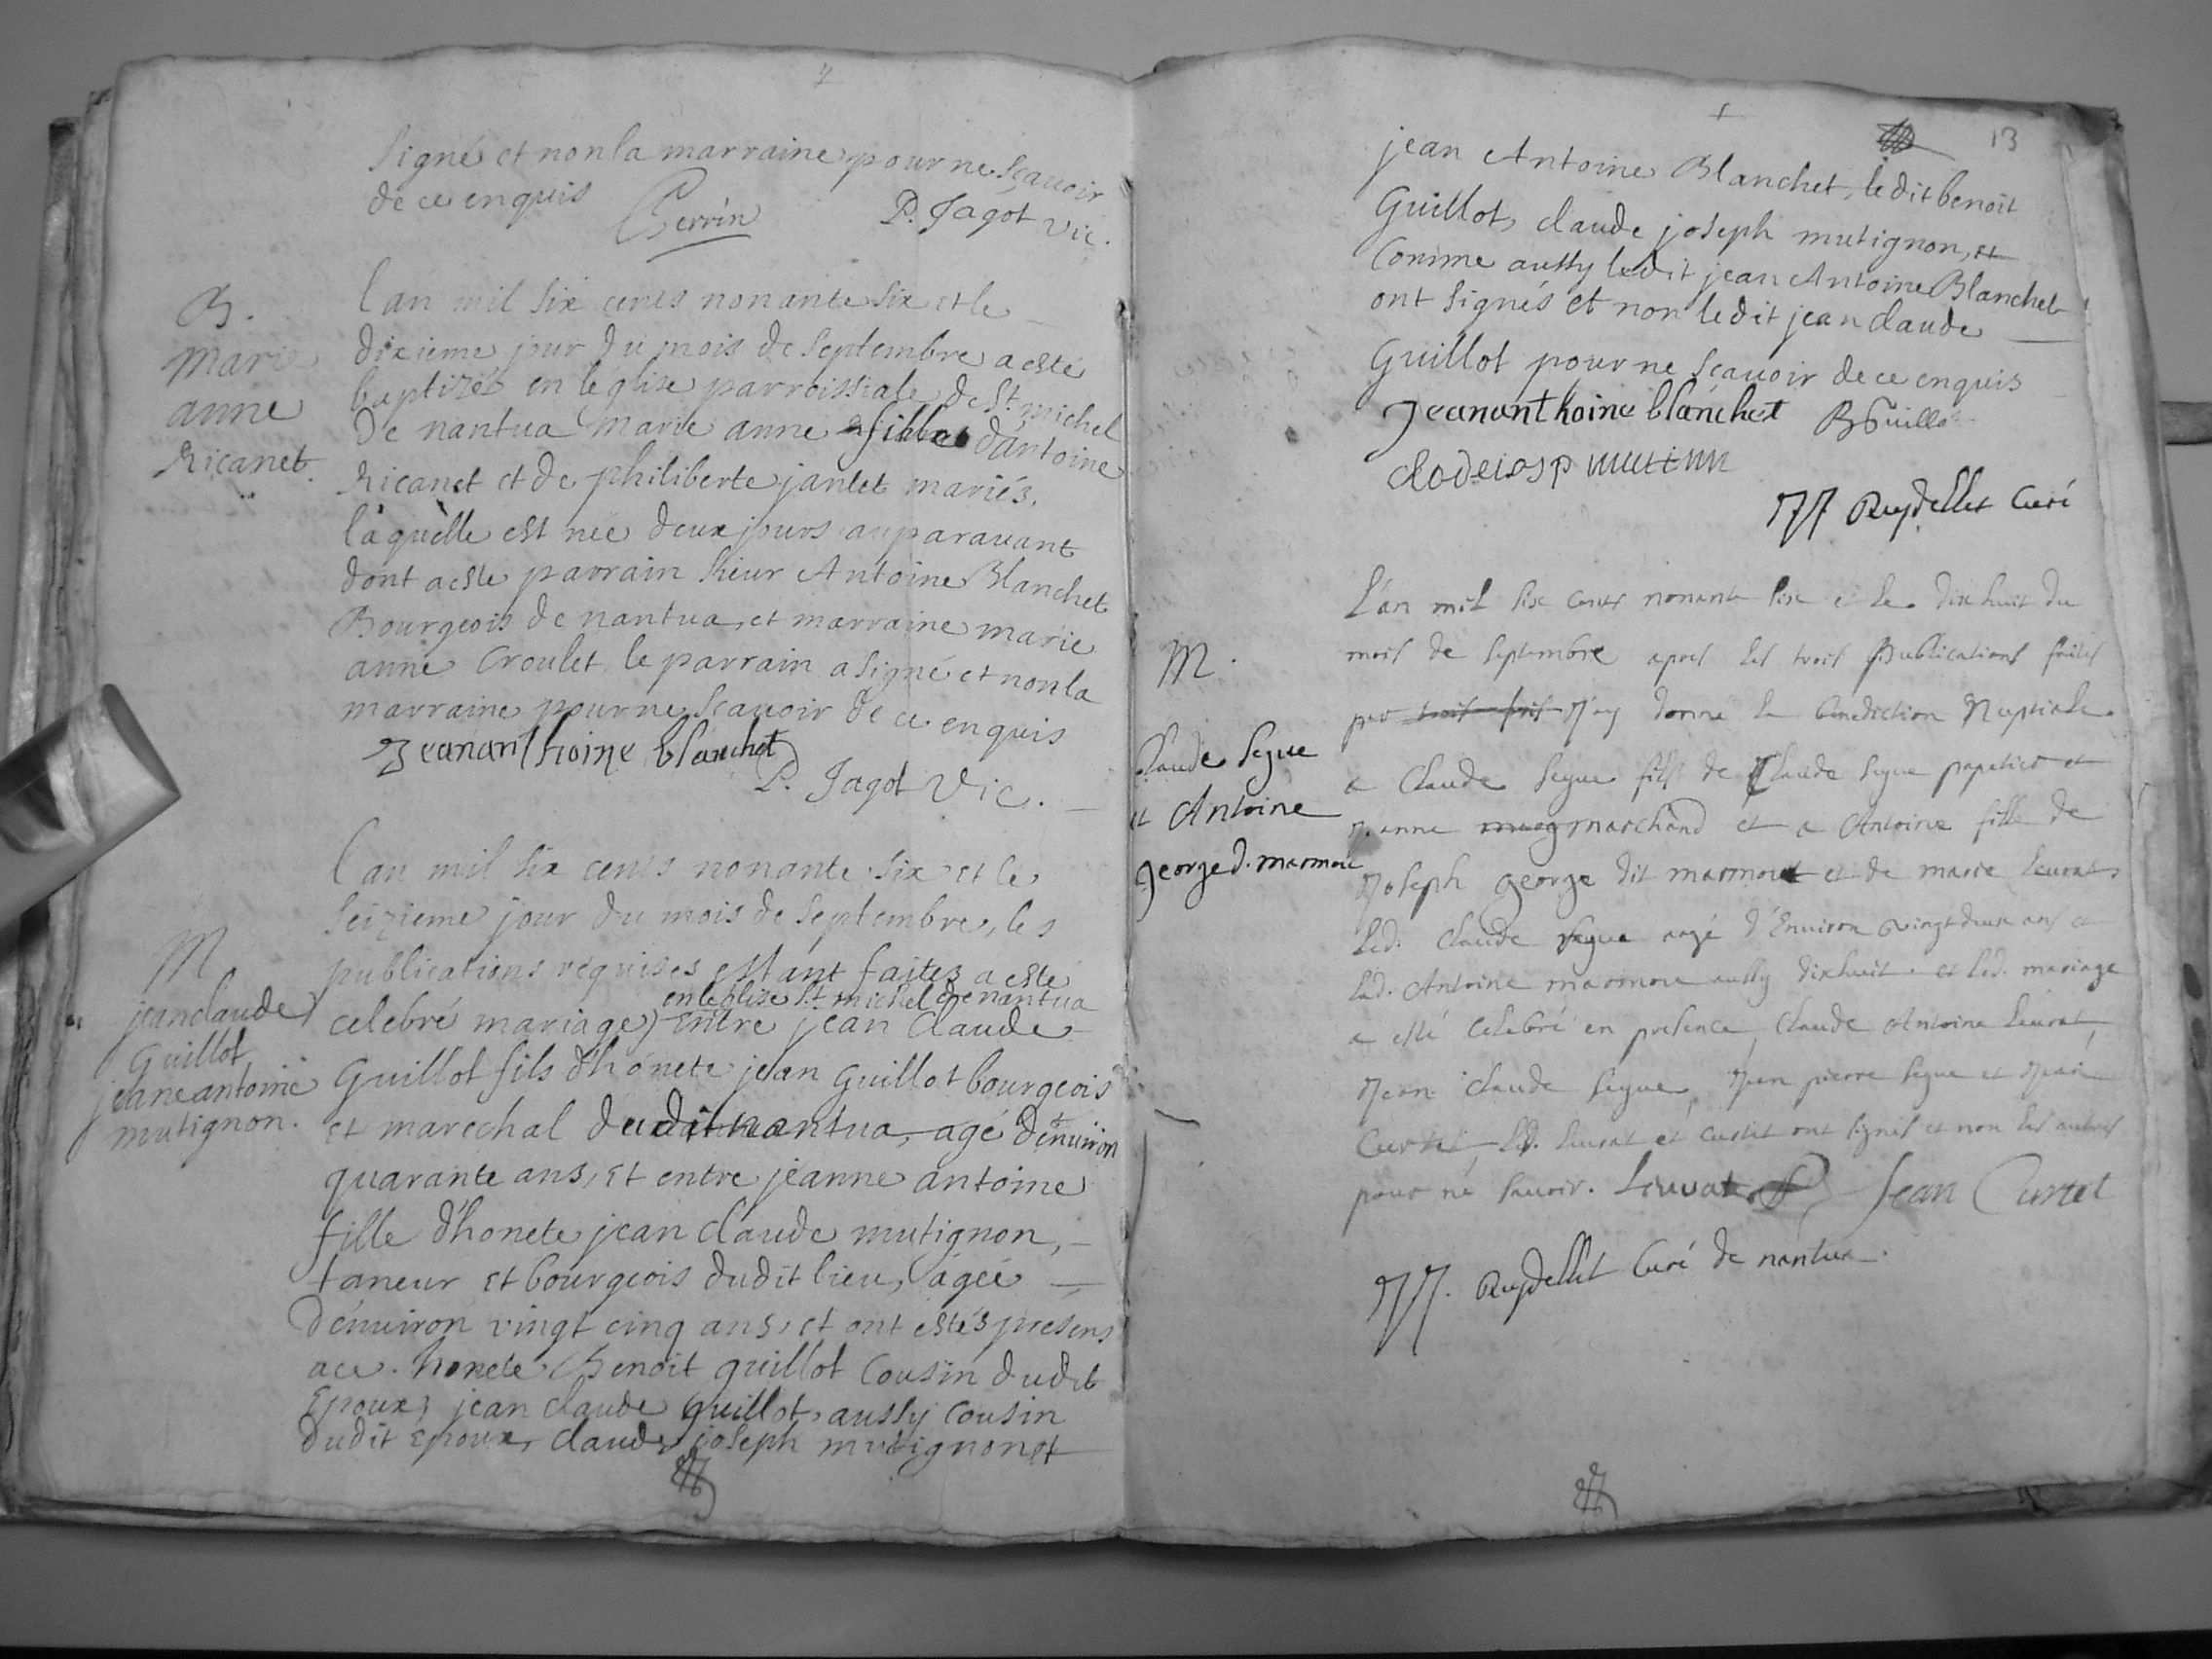 signé et non la marraine pour ne sçavoir
de ce enquis Perrin P. Jagot vic.
B.
marie
anne
Ricanet.
l'an mil six cents nonante six et le
dixieme jour du mois de septembre a esté
baptizée en leglise parroissiale de St. michel
de nantua marie anne fille d'antoine
Ricanet et de philiberte jantet mariés.
laquelle est neé deux jours auparavant
dont a este parrain sieur Antoine Blanchet
Bourgeois de nantua, et marraine marie
anne Croulet le parrain a signé et non la
marraine pour ne scavoir de ce enquis
Jeananthoine blanchet
P. Jagot Vic.
M
jean claude
Guillot
jeane antoine
mutignon.
l'an mil six cents nonante six et le
seizieme jour du mois de septembre, les
publications requises estant faites a esté
en leglise St. michel de nantua
celebré mariage entre jean Claude
Guillot fils d'hónete jean Guillot bourgeois
et marechal dudit nantua, agé d'enuiron
quarante ans, et entre jeanne antoine
fille d'honete jean claude mutignon,
taneur et bourgeois dudit lieu, ágeé
d'enuiron vingt cinq ans, et ont estés presens
a ce. honete Benoit guillot Cousin dudit
Epoux, jean claude Guillot, aussy Cousin
dudit epoux, claude joseph mutignon et
13
jean Antoine Blanchet, ledit benoit
Guillot, claude joseph mutignon, et
Comme aussy ledit jean Antoine Blanchet
ont signés et non ledit jean claude
Guillot pour ne scauoir de ce enquis
Jeananthoine blanchet B Guillo
Ruydellet Curé
M.
Claude Segue
et Antoine
george d. marmout
L'an mil six cents nonante six e le dix huit du
mois de septembre apres les trois Publications faites
par trois fois J'ay donné la benediction Nuptiale
a Claude Segue fils de Claude Segue papetier et
Jeanne marchand et a Antoine fille de
Joseph george dit marmout et de marie leurat,
Led. Claude Segue aagé d'Enuiron vingt deux ans et
lad. Antoine marmout aussy dixhuit. et led. mariage
a esté Celebré en presence, Claude Antoine leurat,
Jean Claude Segue, Jean pierre Segue et Jean
Curtet, Led. leurat et curtet ont signés et non les autres
pour ne scauoir. Leuvat Jean Curtet
Ruydellet Curé de nantua.